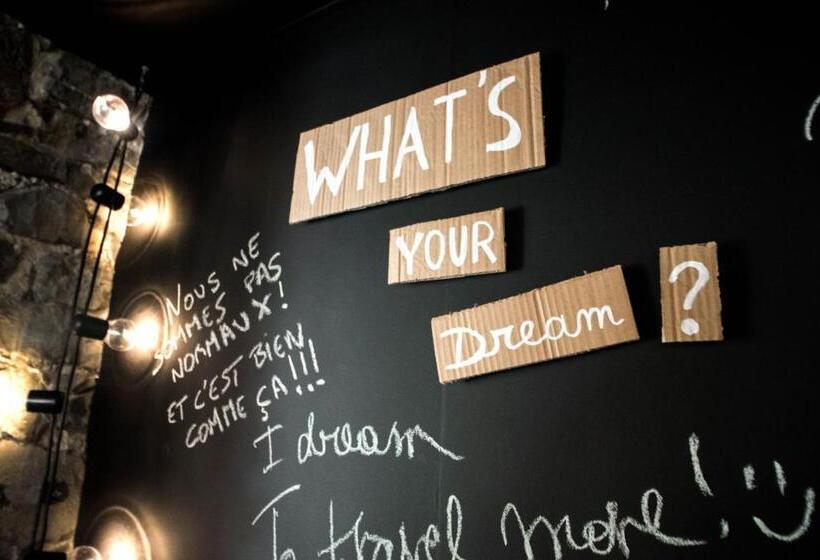 WHAT'S
YOUR
Dream ?
NOUS NE
SOMMES PAS
NORMAUX !
ET C'EST BIEN
COMME ÇA !!!
I dream
To travel more! :)